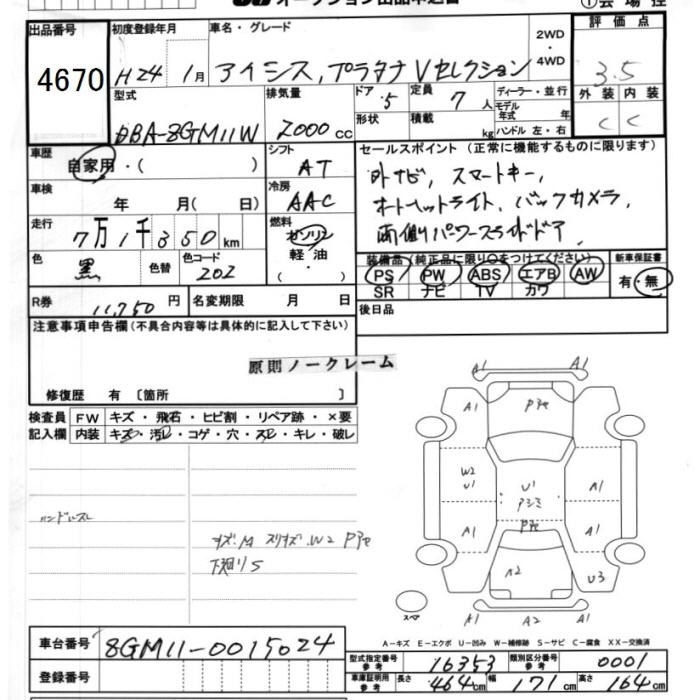 オークション出品申込書
①会場控
出品番号
4670
初度登録年月
H24 1月
車名・グレード
アイシス,プラタナ Vセレクション
2WD
・
4WD
評価点
3.5
外装 内装
C C
型式
DBA-ZGM11W
排気量
2000 cc
ドア
5
形状
定員
7 人
積載
kg
ディーラー・並行
モデル
年式 年
ハンドル 左・右
車歴
自家用・( )
シフト
AT
車検
年 月( 日)
冷房
AAC
走行
7万1千350km
燃料
ガソリン
軽油
・
色
黒
色替
色コード
202
R券
11,750 円
名変期限 月 日
セールスポイント (正常に機能するものに限ります)
外ナビ, スマートキー,
オートライト, バックカメラ,
両側パワースライドドア
装備品(純正品に限り○をつけてください)
PS PW ABS エアB AW
SR ナビ TV カワ
新車保証書
有・無
後日品
注意事項申告欄(不具合内容等は具体的に記入して下さい)
原則ノークレーム
修復歴 有〔箇所 〕
検査員
記入欄
FW キズ・飛石・ヒビ割・リペア跡・×要
内装 キズ・汚レ・コゲ・穴・スレ・キレ・破レ
ハンドルスレ
キズ.M スリキズ.W2
下廻りS
A1 A1
A1 A1
W2
U1
U1
A1
A1 A1
A2 U3
スペア
A1 A2 A1
A-キズ E-エクボ U-凹み W-補修跡 S-サビ C-腐食 XX-交換済
車台番号
ZGM11-0015024
登録番号
型式指定番号
参考
16353
類別区分番号
参考
0001
車庫証明用
参考
長さ 464cm 幅 171cm 高さ 164cm